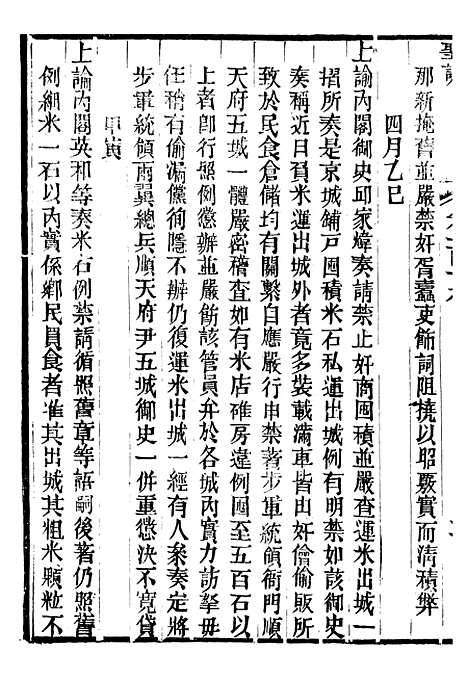 聖訓
那新掩舊並嚴禁奸胥蠹吏飾詞阻撓以昭覈實而清積弊
四月乙巳
上諭內閣御史邱家煒奏請禁止奸商囤積並嚴查運米出城一
摺所奏是京城舖戶囤積米石私運出城例有明禁如該御史
奏稱近日積米運出城外者竟多裝載滿車皆出奸儈偷販所
致於民食倉儲均有關繫自應嚴行申禁著步軍統領衙門順
天府五城一體嚴密稽查如有米店碓房違例囤至五百石以
上者卽行照例懲辦並嚴飭該管員弁於各城內實力訪拏毋
任稍有偷漏儻徇隱不辦仍復運米出城一經有人參奏定將
步軍統領兩翼總兵順天府尹五城御史一併重懲決不寬貸
甲寅
上諭內閣英和等奏米石例禁請循照舊章等語嗣後著仍照舊
例細米一石以內實係鄉民買食者准其出城其粗米顆粒不